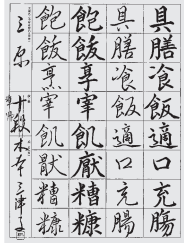 具膳飡飯適口充腸
具膳飡飯適口充腸
飽飫享宰飢厭糟糠
飽飫烹宰飢厭糟糠
十段